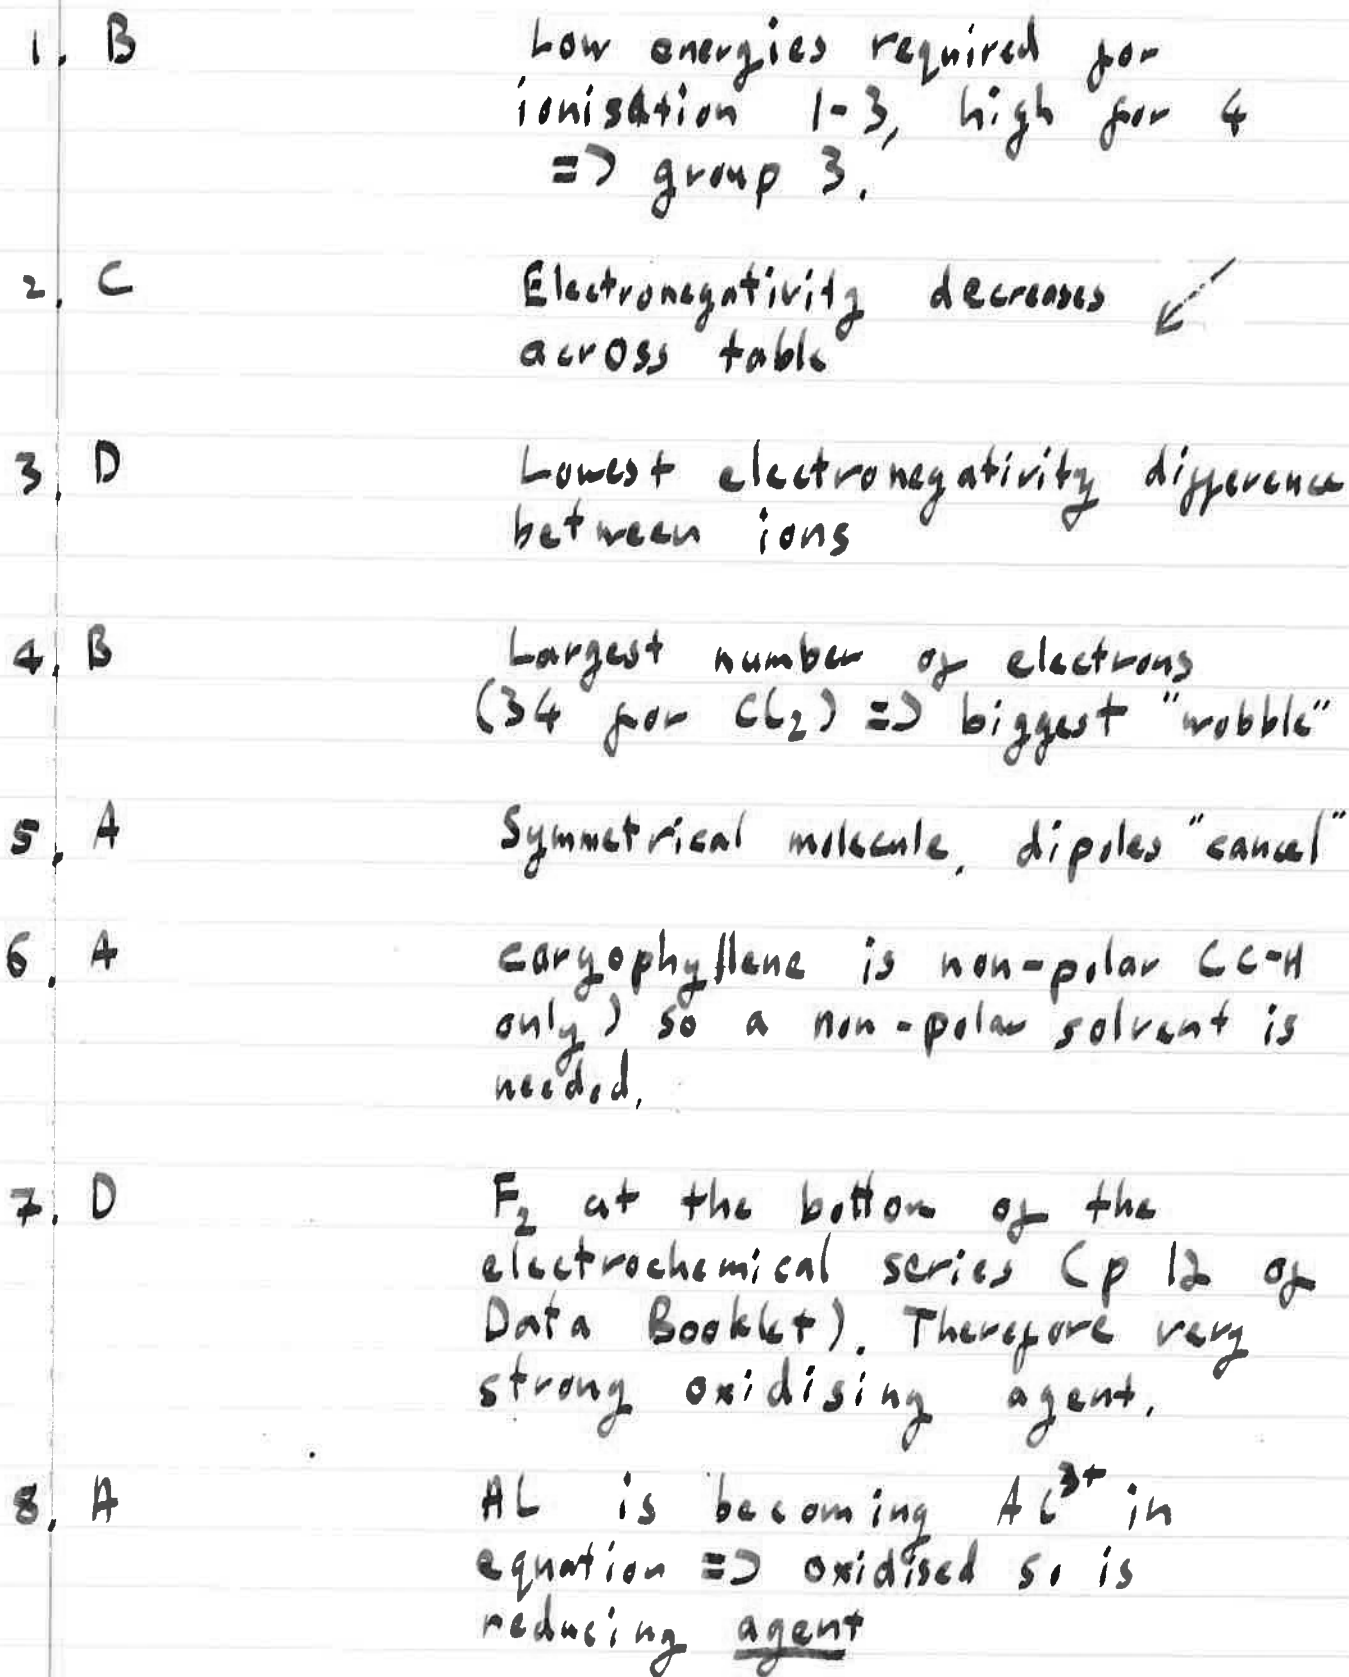 1. B Low energies required for
ionisation 1-3, high for 4
=> group 3.
2. C Electronegativity decreases ↙
across table
3. D Lowest electronegativity difference
between ions
4. B Largest number of electrons
(34 for Cl₂) => biggest "wobble"
5. A Symmetrical molecule, dipoles "cancel"
6. A caryophyllene is non-polar (C-H
only) so a non-polar solvent is
needed.
7. D F₂ at the bottom of the
electrochemical series (p 12 of
Data Booklet). Therefore very
strong oxidising agent.
8. A Al is becoming Al³⁺ in
equation => oxidised so is
reducing agent